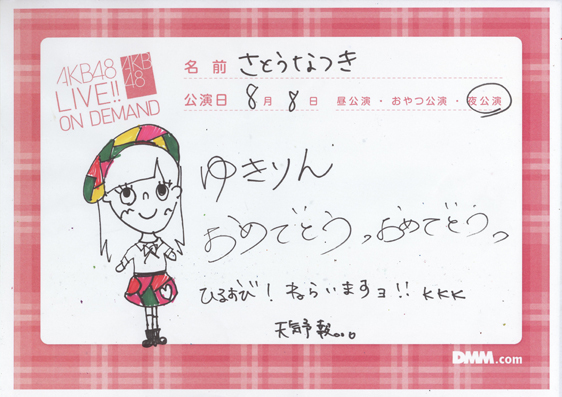 AKB48
LIVE!!
ON DEMAND
AKB
48
名前 さとうなつき
公演日 8月8日 昼公演・おやつ公演・夜公演
ゆきりん
おめでとうっおめでとうっ
ひるおび! ねらいますョ!! KKK
天気予報。。。
DMM.com